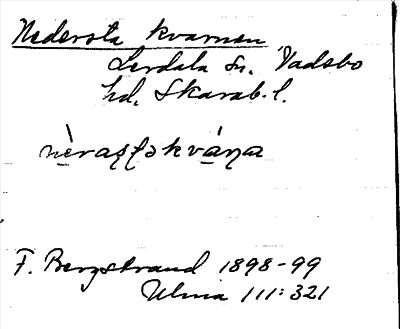 Nedersta kvarnen,
Lerdala sn. Vadsbo
hd. Skarab. l.
nèraʂʈəkváɳa
F. Bergstrand 1898-99
Ulma 111:321